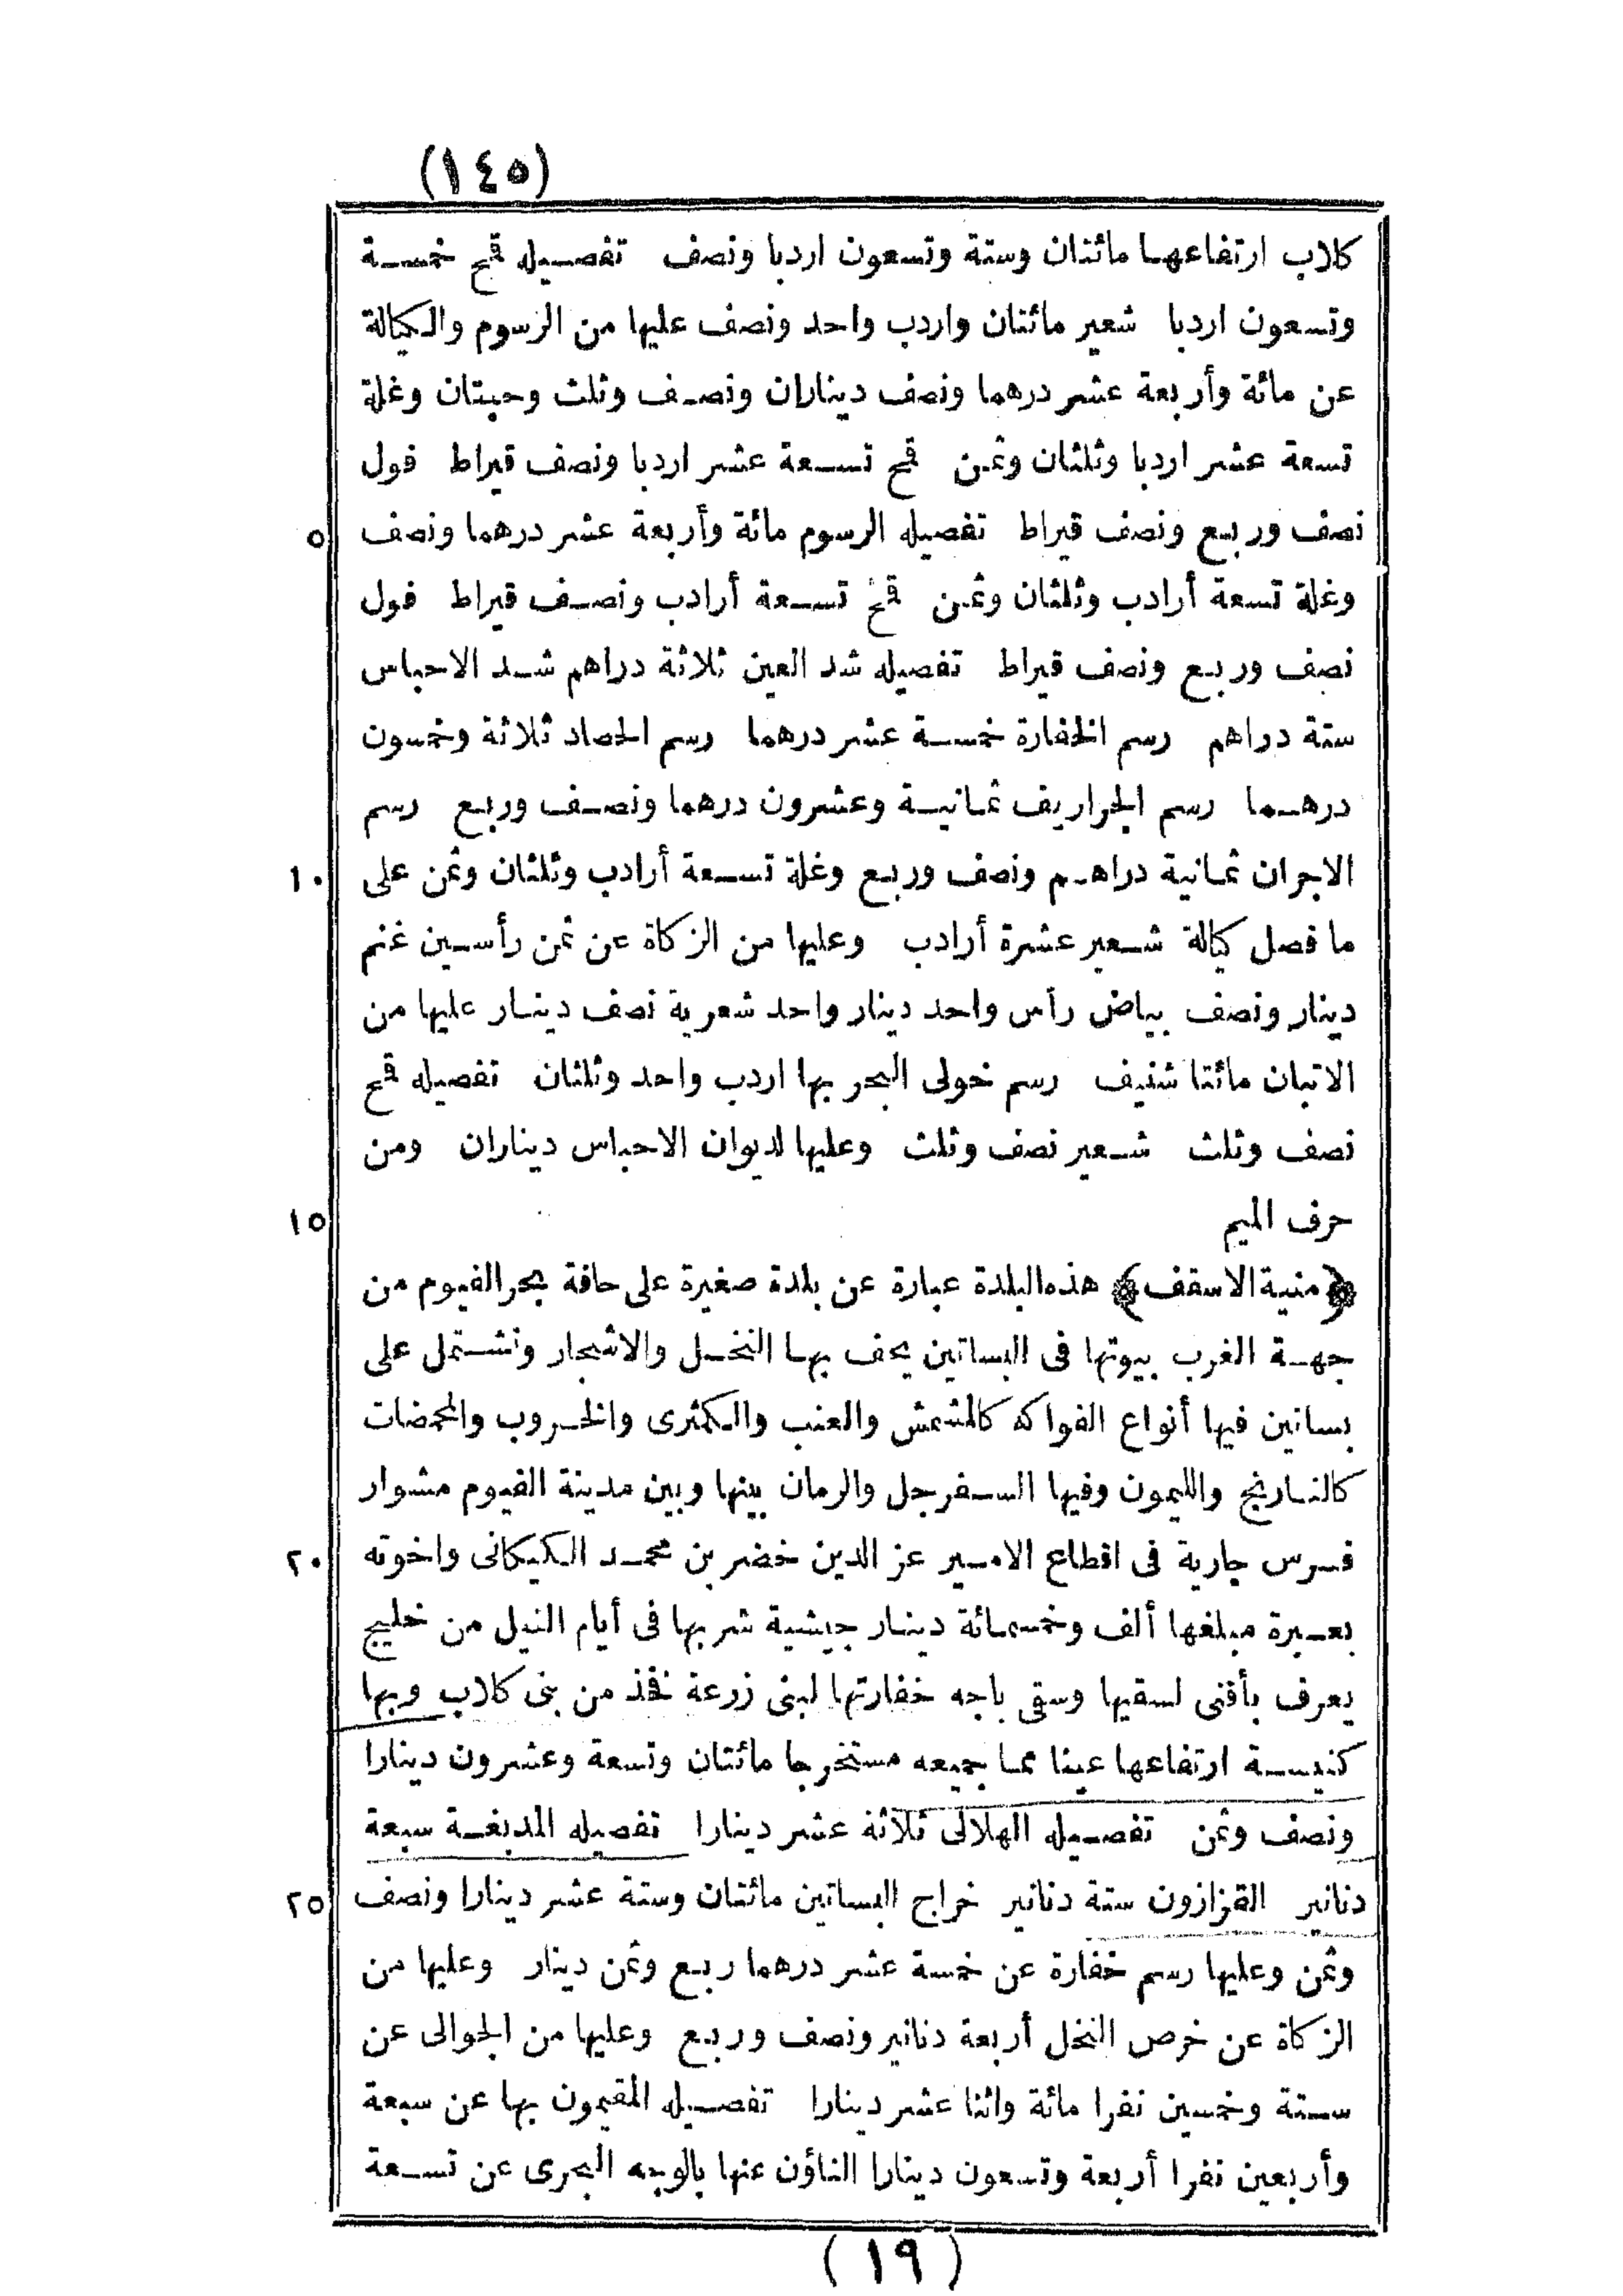 (١٤٥)
كلاب ارتفاعها مائتان وستة وتسعون اردبا ونصف تفصيله قمح خمسة
وتسعون اردبا شعير مائتان واردب واحد ونصف عليها من الرسوم والكيالة
عن مائة وأربعة عشر درهما ونصف ديناران ونصف وثلث وحبتان وغلة
تسعة عشر اردبا وثلثان وثمن قمح تسعة عشر اردبا ونصف قيراط فول
٥ نصف وربع ونصف قيراط تفصيله الرسوم مائة وأربعة عشر درهما ونصف
وغلة تسعة أرادب وثلثان وثمن قمح تسعة أرادب ونصف قيراط فول
نصف وربع ونصف قيراط تفصيله شد العين ثلاثة دراهم شد الاحباس
ستة دراهم رسم الخفارة خمسة عشر درهما رسم الحصاد ثلاثة وخمسون
درهما رسم الجراريف ثمانية وعشرون درهما ونصف وربع رسم
١٠ الاجران ثمانية دراهم ونصف وربع وغلة تسعة أرادب وثلثان وثمن على
ما فصل كيالة شعير عشرة أرادب وعليها من الزكاة عن ثمن رأسين غنم
دينار ونصف بياض رأس واحد دينار واحد شعرية نصف دينار عليها من
الاتبان مائتا شنيف رسم خولى البحر بها اردب واحد وثلثان تفصيله قمح
نصف وثلث شعير نصف وثلث وعليها لديوان الاحباس ديناران ومن
١٥ حرف الميم
﴿منية الاسقف﴾ هذه البلدة عبارة عن بلدة صغيرة على حافة بحر الفيوم من
جهة الغرب بيوتها فى البساتين يحف بها النخل والاشجار وتشتمل على
بساتين فيها أنواع الفواكه كالمشمش والعنب والكمثرى والخروب والمحمضات
كالنارنج والليمون وفيها السفرجل والرمان بينها وبين مدينة الفيوم مشوار
٢٠ فرس جارية فى اقطاع الامير عز الدين خضر بن محمد الكيكانى واخوته
بعبرة مبلغها ألف وخمسمائة دينار جيشية شربها فى أيام النيل من خليج
يعرف بأقنى لسقيها وسقى باجه خفارتها لبنى زرعة فخذ من بنى كلاب وبها
كنيسة ارتفاعها عينا مما جميعه مستخرجا مائتان وتسعة وعشرون دينارا
ونصف وثمن تفصيله الهلالى ثلاثة عشر دينارا تفصيله المدبغة سبعة
٢٥ دنانير القزازون ستة دنانير خراج البساتين مائتان وستة عشر دينارا ونصف
وثمن وعليها رسم خفارة عن خمسة عشر درهما ربع وثمن دينار وعليها من
الزكاة عن خرص النخل أربعة دنانير ونصف وربع وعليها من الجوالى عن
ستة وخمسين نفرا مائة واثنا عشر دينارا تفصيله المقيمون بها عن سبعة
وأربعين نفرا أربعة وتسعون دينارا الناؤن عنها بالوجه البحرى عن تسعة
(١٩)